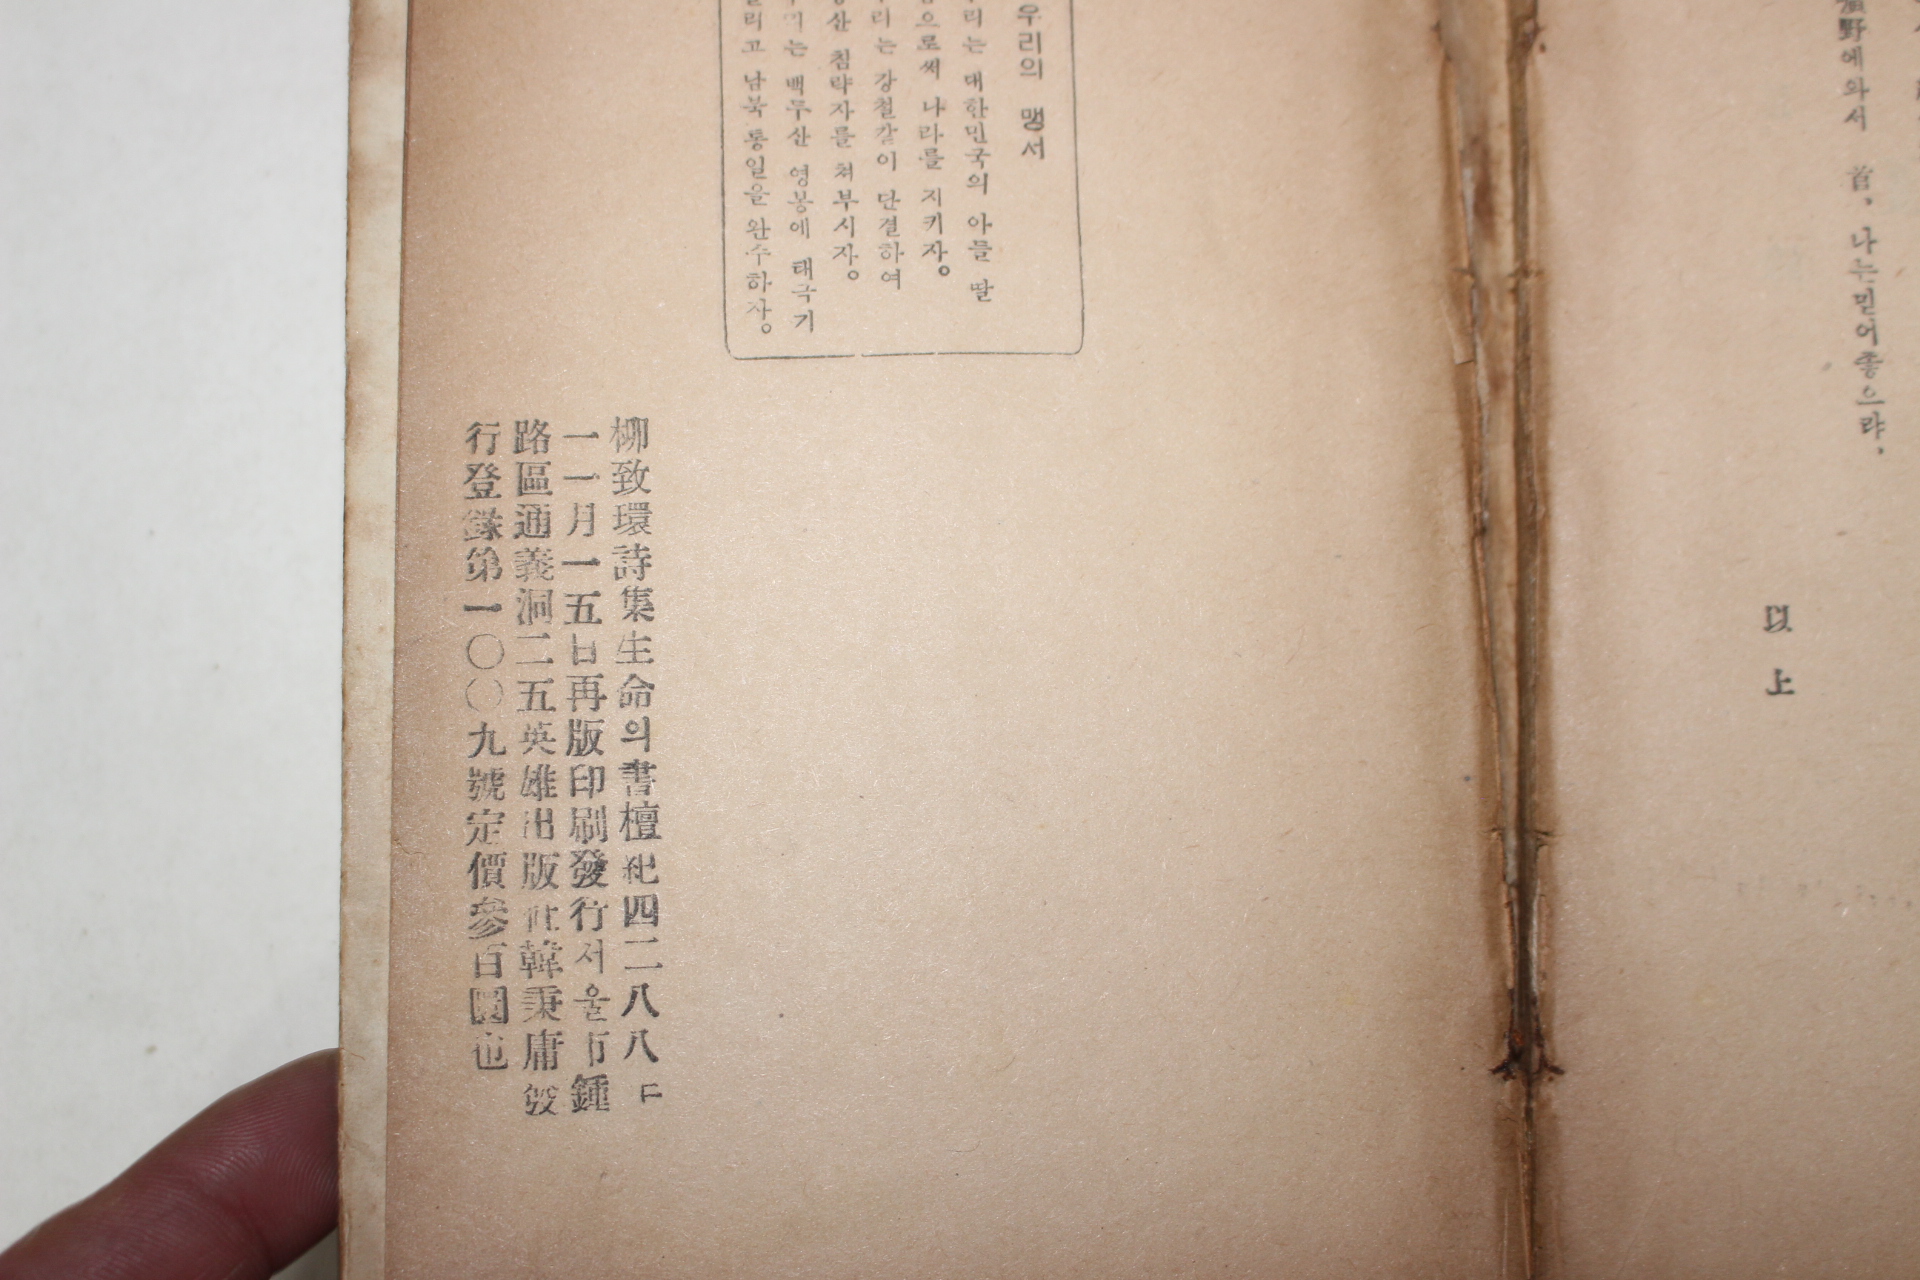 野에와서 首, 나는믿어좋으랴,
以上
우리의 맹서
리는 대한민국의 아들 딸
으로써 나라를 지키자。
리는 강철같이 단결하여
산 침략자를 쳐부시자。
는 백두산 영봉에 태극기
리고 남북통일을 완수하자。
柳致環詩集生命의書檀紀四二八八
一一月一五日再版印刷發行서울市鍾
路區通義洞二五英雄出版社韓秉庸發
行登錄第一〇〇九號定價參百圜也